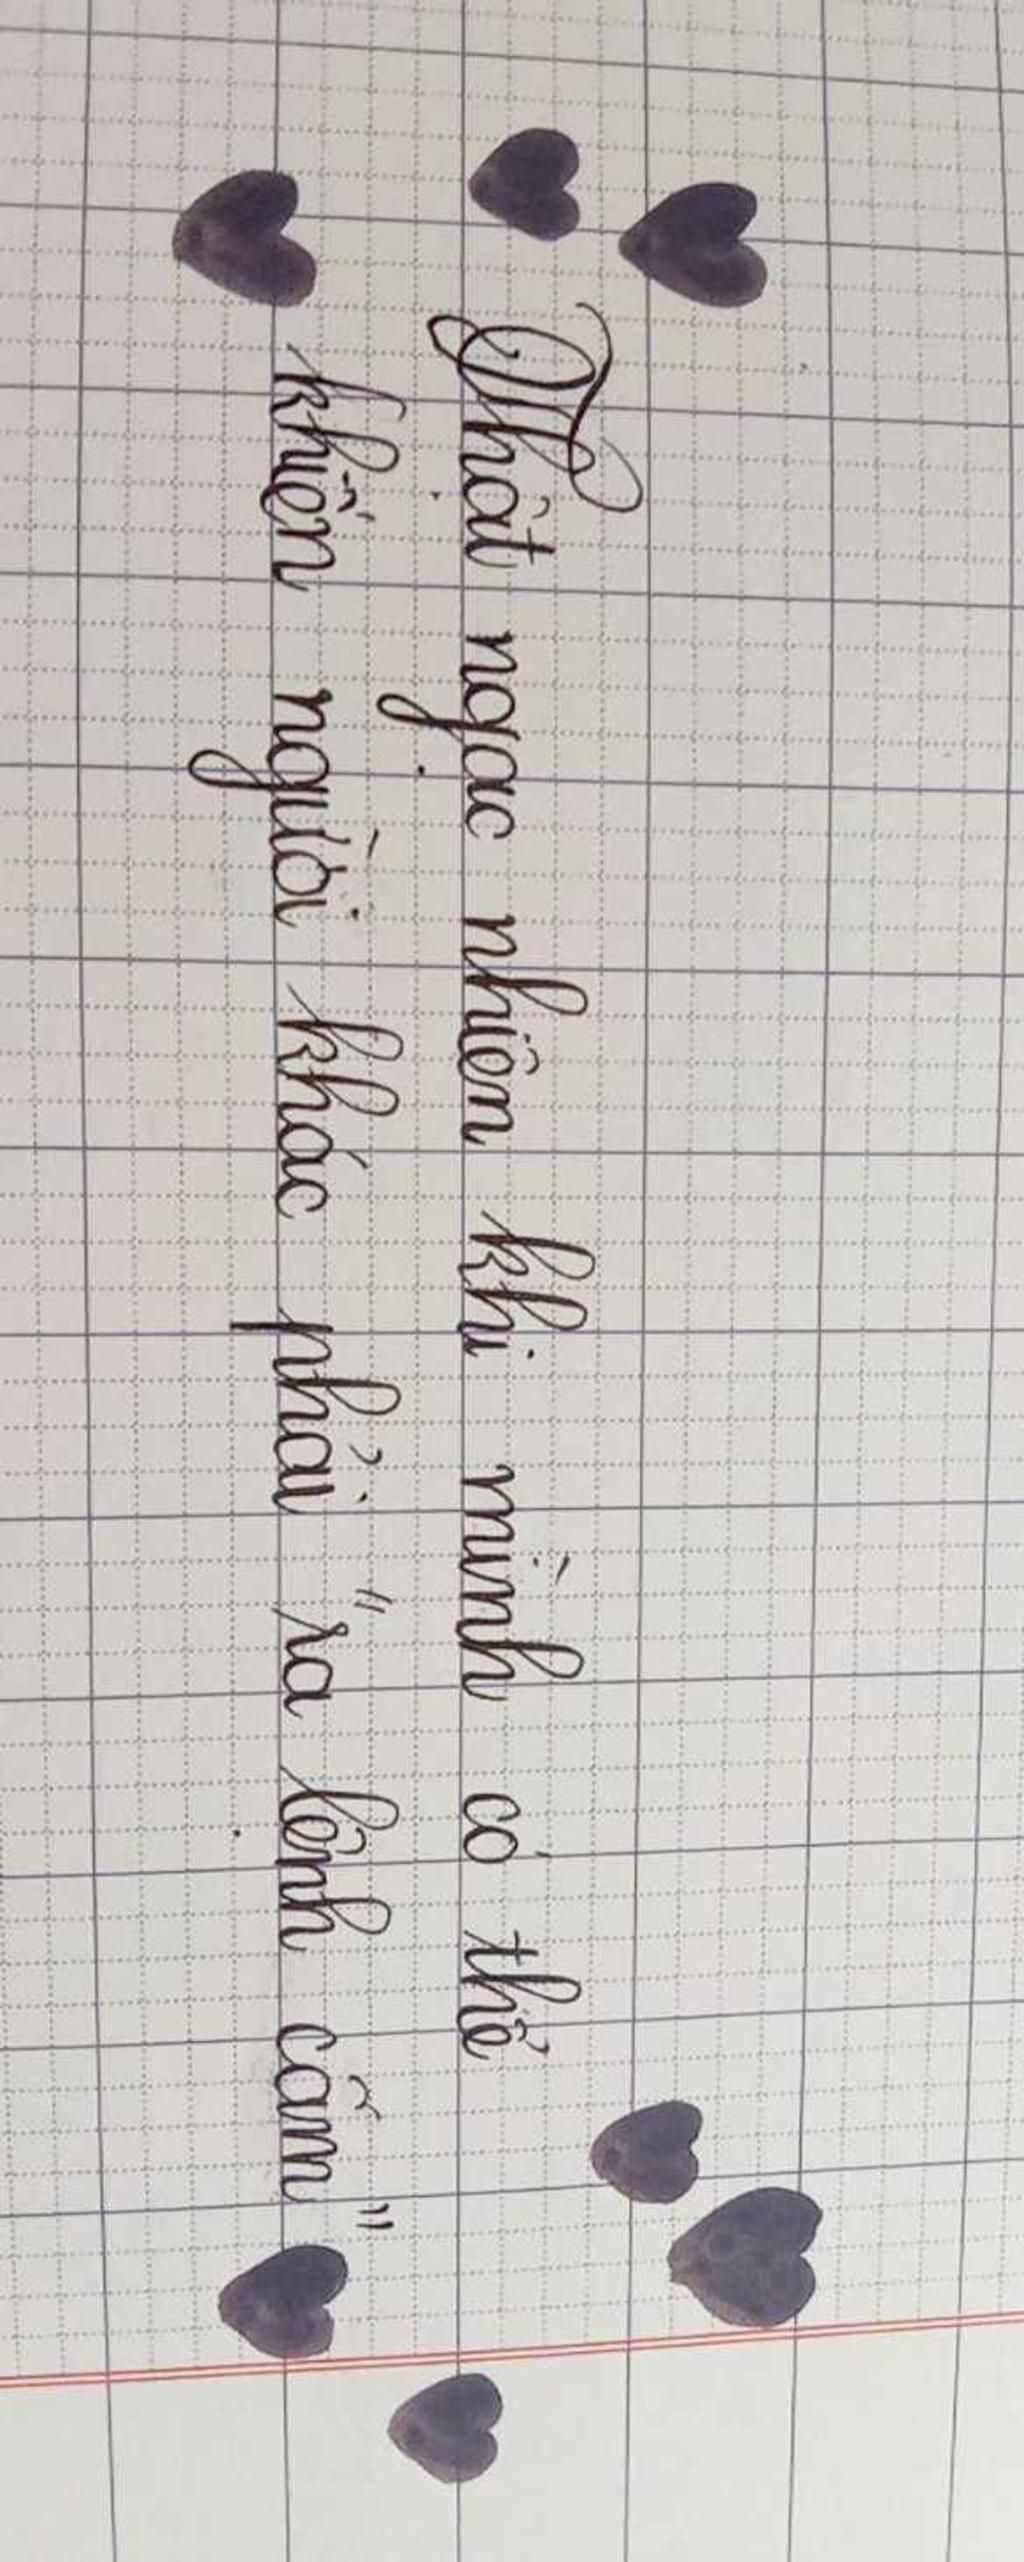 Thật ngạc nhiên khi mình có thể
khiến người khác phải "ra lệnh cấm"